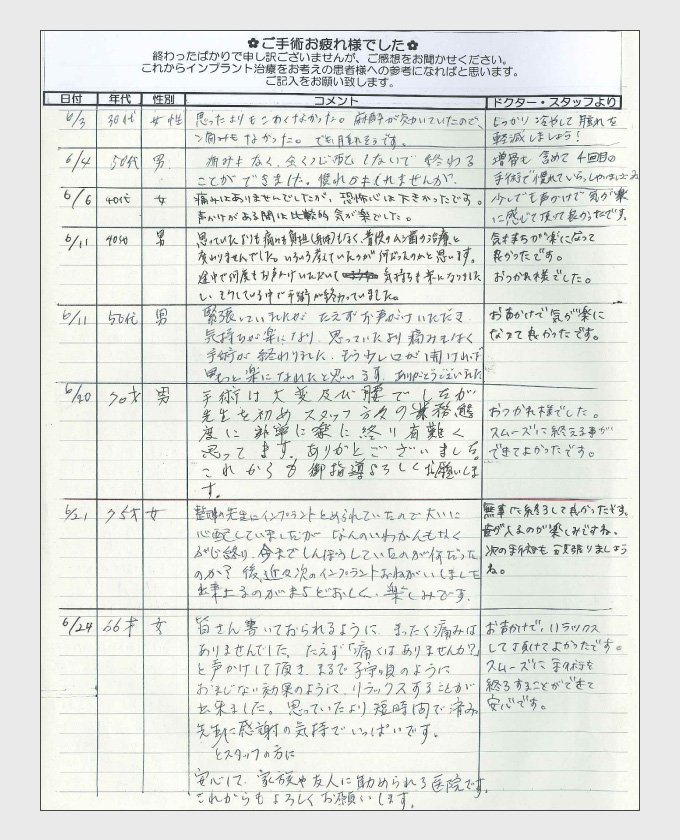 ✿ご手術お疲れ様でした✿
終わったばかりで申し訳ございませんが、ご感想をお聞かせください。
これからインプラント治療をお考えの患者様への参考になればと思います。
ご記入をお願い致します。
日付 年代 性別 コメント ドクター・スタッフより
6/3 30代 女性
思ったよりもこわくなかった。麻酔が効いていたので、
痛みもなかった。でも腫れそうです。
しっかり冷やして腫れを
軽減しましょう!
6/4 50代 男
痛みもなく、全く心配しないで終わる
ことができました。慣れかもしれませんが。
増骨も含めて4回目の
手術で慣れていらっしゃいますね
6/6 40代 女
痛みはありませんでしたが、恐怖心は大きかったです。
声かけがある間は比較的気が楽でした。
少しでも声かけで気が楽
に感じて頂けて良かったです。
6/11 40代 男
思っていたよりも痛みも負担もなく、普段のムシ歯の治療と
変わりませんでした。いろいろ考えていたのが何だったのかと思います。
途中で何度もお声がけいただいて 気持ちも楽になりました
し、そうしている中で手術が終わっていました。
気持ちが楽になって
良かったです。
おつかれ様でした。
6/11 50代 男
緊張していましたが たえずお声がけいただき
気持ちが楽になり、思っていたより痛みもなく
手術が終わりました。もう少し口が開ければ
もっと楽になれたと思います。ありがとうございました
お声かけで気が楽に
なって良かったです。
6/20 70才 男
手術は大変及び腰でしたが
先生を初めスタッフ方々の業務態
度に 楽に終り有難く
思ってます。ありがとございました。
これからも御指導よろしくお願いしま
す。
おつかれ様でした。
スムーズに終える事が
できてよかったです。
6/21 75才 女
先生にインプラントをとめられていたので大いに
心配していましたが なんのいわかんもなく
ぶじ終り、今までしんぼうしていたのが何だった
のか? 後、近々次のインプラントおねがいしました
出来上るのがまちどおしく、楽しみです。
無事に終了して良かったです。
歯が入るのが楽しみですね。
次の手術も頑張りましょう
ね。
6/24 66才 女
皆さん書いておられるように、まったく痛みは
ありませんでした。たえず「痛くはありませんか?」
と声かけして頂き、まるで子守唄のように
おまじない効果のように、リラックスすることが
出来ました。思っていたより短時間で済み
先生に感謝の気持でいっぱいです。
とスタッフの方に
安心して、家族や友人に勧められる医院です。
これからもよろしくお願いします。
お声かけで、リラックス
して頂けてよかったです。
スムーズに手術を
終了することができて
安心です。